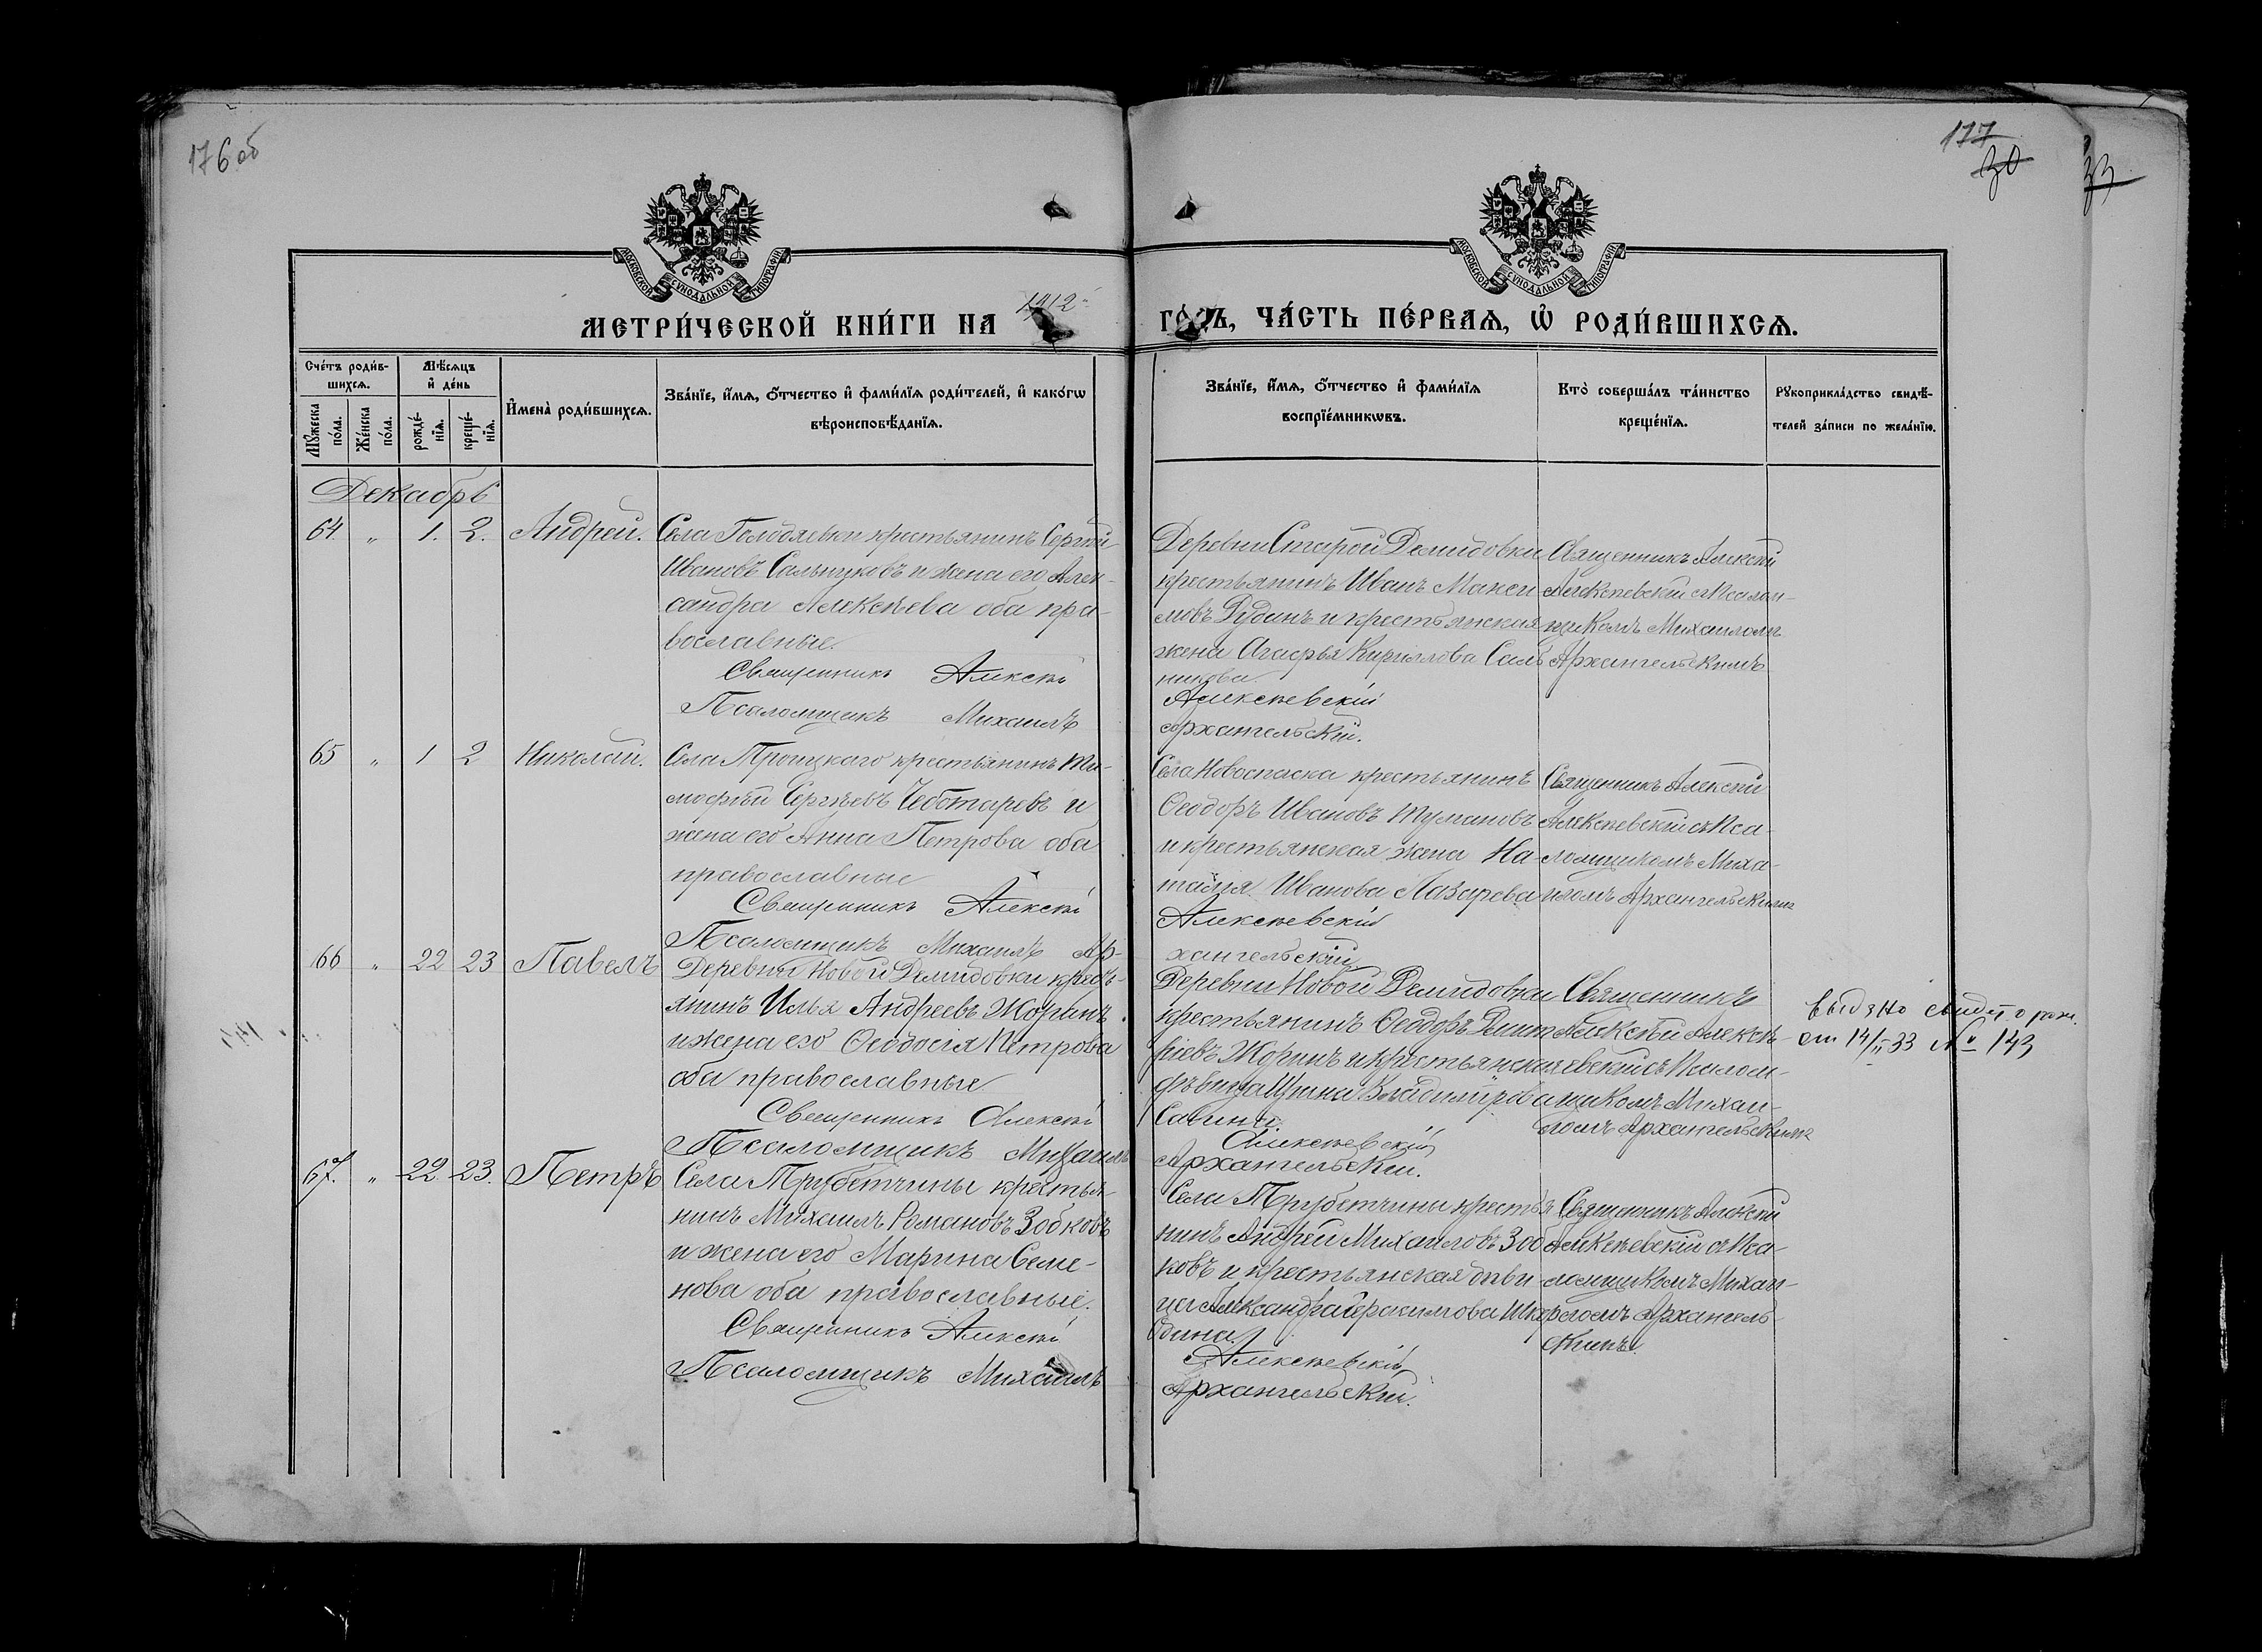 176 об
177
30
33
МОСКОВСКОЙ СѴНОДАЛЬНОЙ ТИПОГРАФІИ
МОСКОВСКОЙ СѴНОДАЛЬНОЙ ТИПОГРАФІИ
МЕТРИ́ЧЕСКОЙ КНИ́ГИ НА 1912 ГО́ДЪ, ЧА́СТЬ ПЕ́РВАѦ, Ѡ҆ РОДИ́ВШИХСѦ.
Сче́тъ роди́в-
шихсѧ.
Мꙋ́жеска по́ла.
Же́нска по́ла.
Мѣ́сѧцъ и҆ де́нь
рожде́-нїѧ.
креще́-нїѧ.
И҆мена̀ роди́вшихсѧ.
Зва́нїе, и҆́мѧ, ѻ҆́тчество и҆ фами́лїѧ роди́телей, и҆ како́гѡ
вѣроисповѣ́данїѧ.
Зва́нїе, и҆́мѧ, ѻ҆́тчество и҆ фами́лїѧ
воспрїе́мникѡвъ.
Кто̀ соверша́лъ та́инство
креще́нїѧ.
Рꙋкоприкла́дство свидѣ́-
телей за́писи по жела́нїю.
Декабрь
64. " 1. 2. Андрей.
Села Голодяевки крестьянинъ Сергѣй
Ивановъ Сальниковъ и жена его Алек-
сандра Алексѣева оба пра-
вославные.
Священникъ Алексѣй
Псаломщикъ Михаилъ
Деревни Старой Демидовки
крестьянинъ Иванъ Макси-
мовъ Рудинъ и крестьянская
жена Агафья Кириллова Саль-
никова.
Алексѣевскій
Архангельскій.
Священникъ Алексѣй
Алексѣевскій съ Псалом-
щикомъ Михаиломъ
Архангельскимъ
65 " 1 2 Николай.
Села Троицкаго крестьянинъ Ти-
мофѣй Сергѣевъ Чеботаревъ и
жена его Анна Петрова оба
православные
Священникъ Алексѣй
Псаломщикъ Михаилъ Ар-
Села Новоспаска крестьянинъ
Ѳеодоръ Ивановъ Тумановъ
и крестьянская жена На-
талія Иванова Лазарева
Алексѣевскій
хангельскій
Священникъ Алексѣй
Алексѣевскій съ Пса-
ломщикомъ Миха-
иломъ Архангельскимъ
66 " 22 23 Павелъ
Деревни Новой Демидовки кресть-
янинъ Илья Андреевъ Жоринъ
и жена его Ѳеодосія Петрова
оба православные
Священникъ Алексѣй
Псаломщикъ Михаилъ
Деревни Новой Демидовки
крестьянинъ Ѳеодоръ Димит-
ріевъ Жоринъ и крестьянская
дѣвица Ирина Владимірова
Савина.
Алексѣевскій
Архангельскій.
Священникъ
Алексѣй Алексѣ-
евскій съ Псалом-
щикомъ Михаи-
ломъ Архангельскимъ
выдано свидет о рож.
от 14/II 33 № 143
67. " 22 23. Петръ
Села Трубетчины крестья-
нинъ Михаилъ Романовъ Зобковъ
и жена его Марина Семе-
нова оба православные.
Священникъ Алексѣй
Псаломщикъ Михаилъ
Села Трубетчины крестья-
нинъ Андрей Михаиловъ Зоб-
ковъ и крестьянская дѣви-
ца Александра Герасимова
Алексѣевскій
Архангельскій.
Священникъ Алексѣй
Алексѣевскій съ Пса-
ломщикомъ Михаи-
ломъ Архангель-
скимъ.